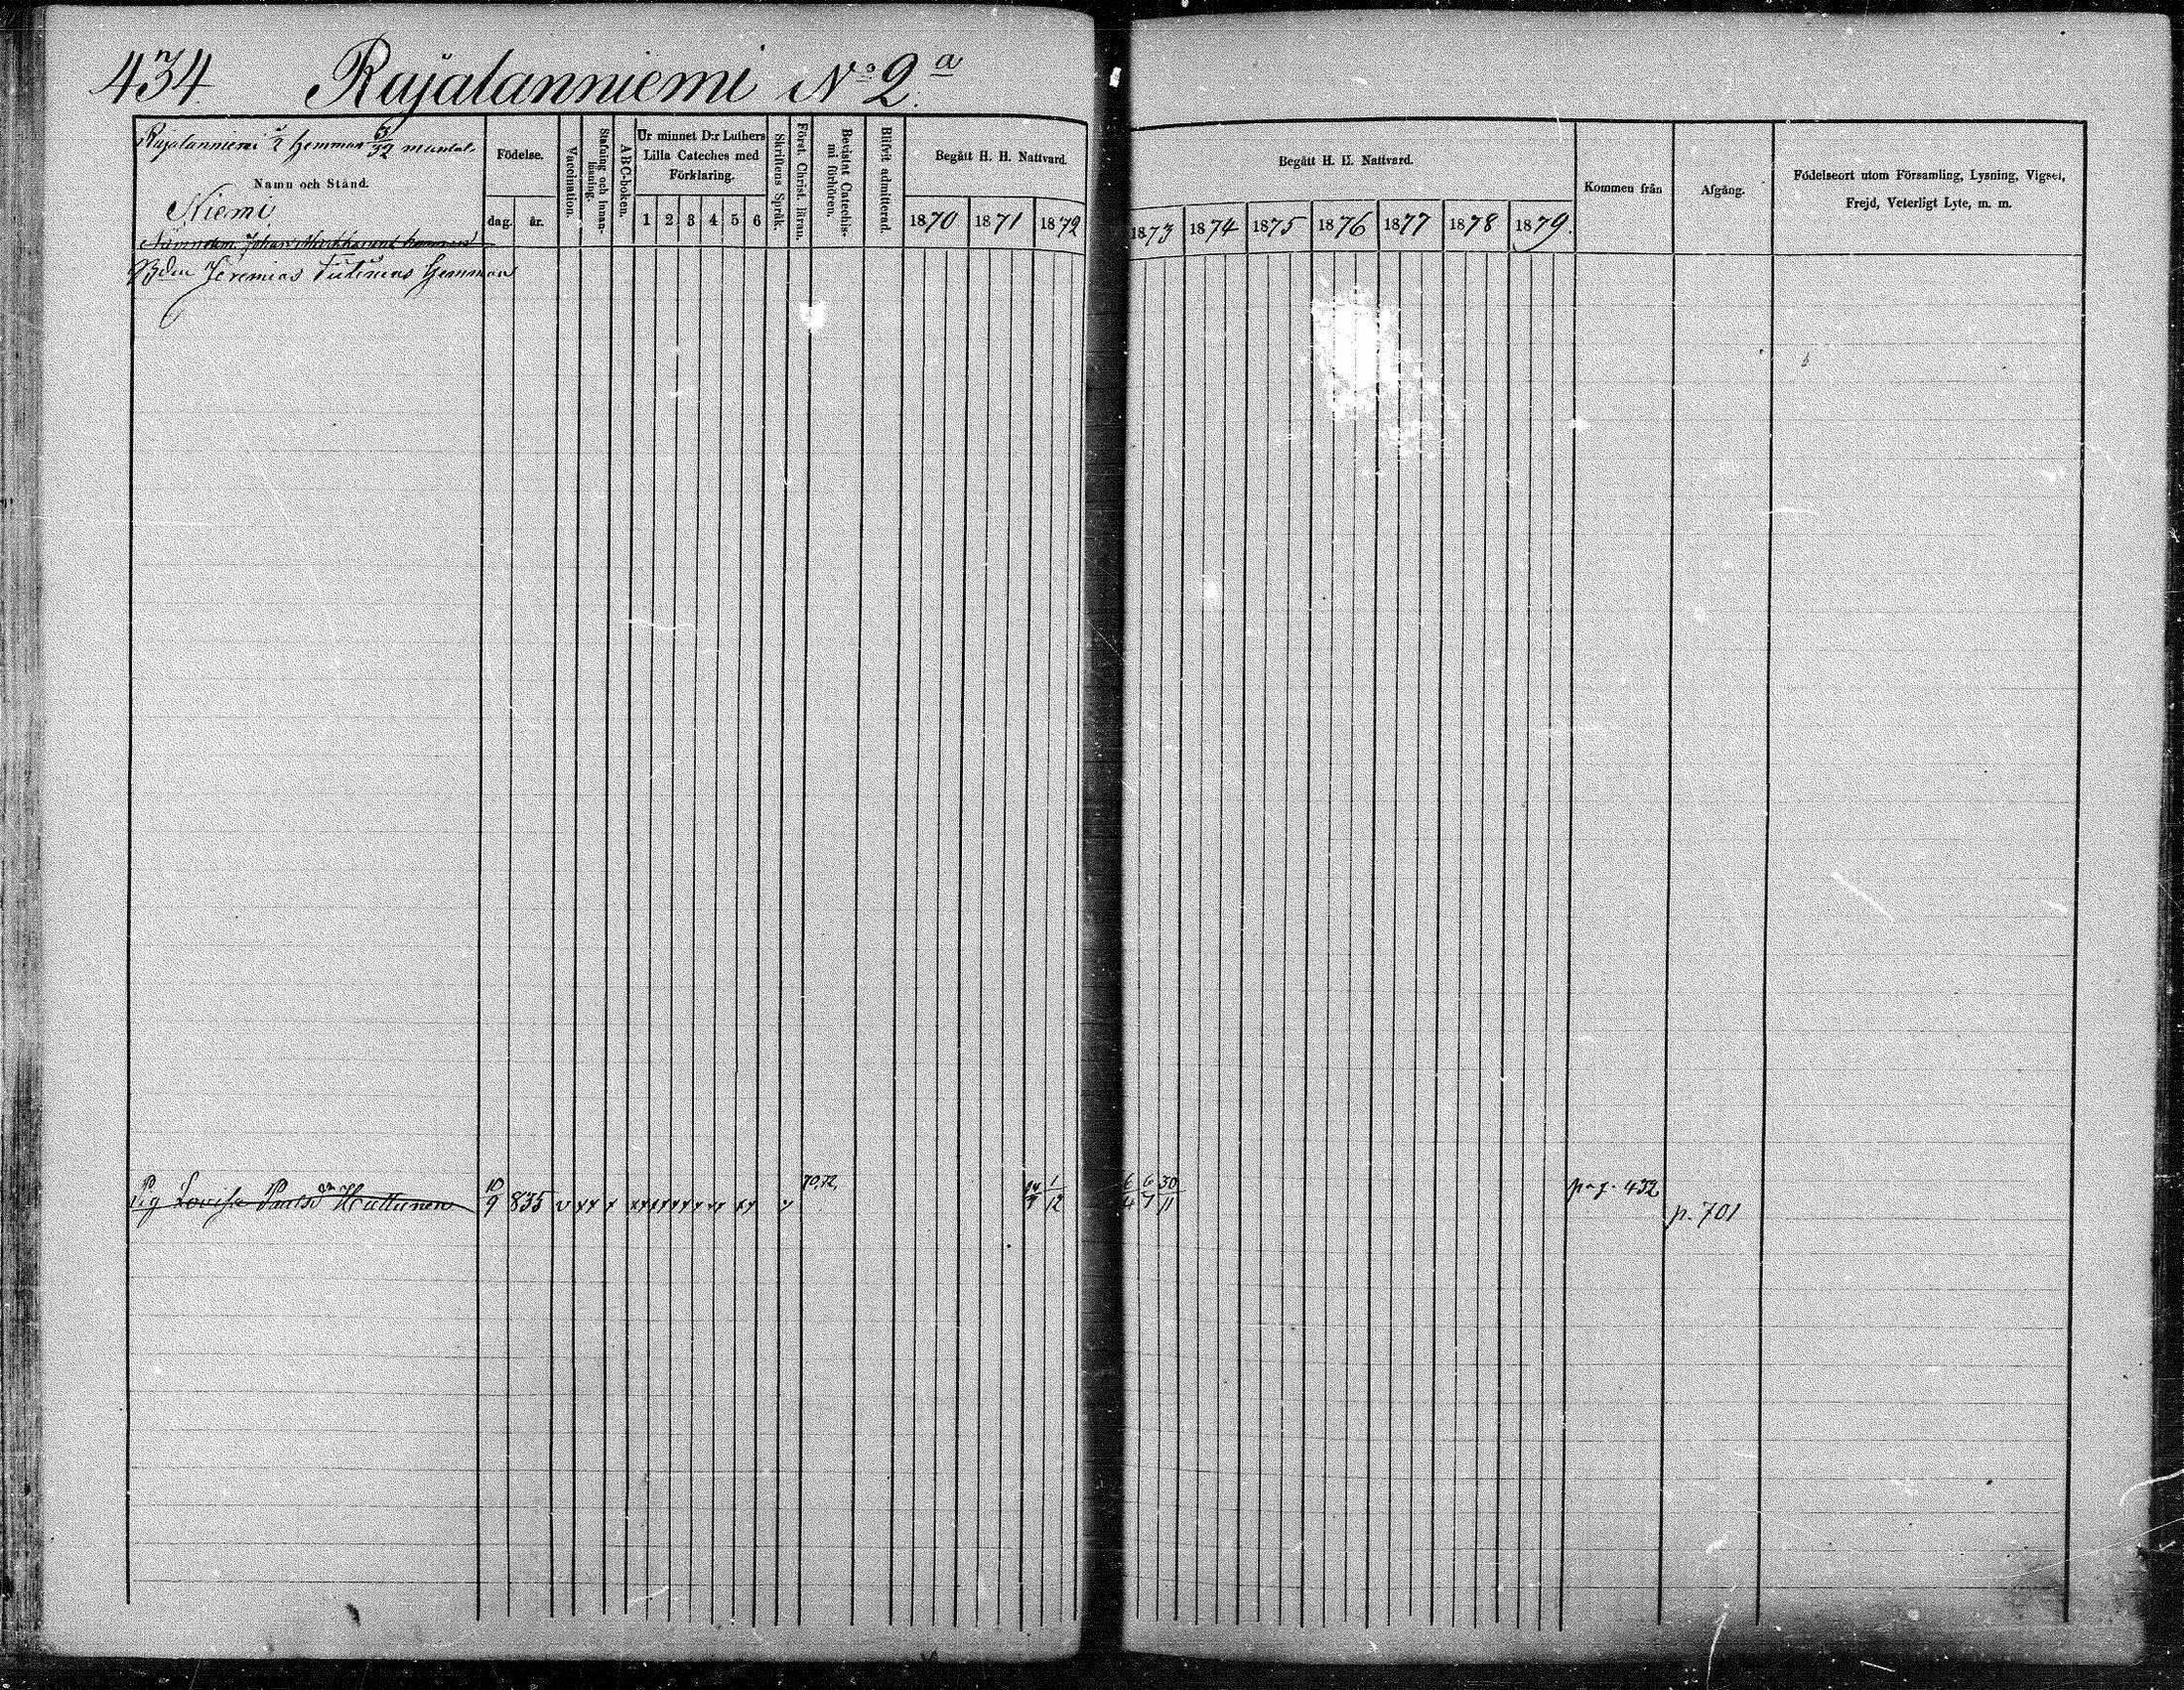 434 Rajalanniemi No 2.a
Rajalanniemi 1/2 Hemman 5/32 mantal.
Namn och Stånd.
Niemi
Johan
Bden Jeremias Hemman
Födelse.
dag. år.
Vaccination.
Stafning och innanläsning.
ABC-boken.
Ur minnet D:r Luthers Lilla Cateches med Förklaring.
1 2 3 4 5 6
Skriftens Språk.
Först. Christ. läran.
Bevistat Catechismi förhören.
Blifvit admitterad.
Begått H. H. Nattvard.
1870 1871 1872
Begått H. H. Nattvard.
1873 1874 1875 1876 1877 1878 1879.
Kommen från
Afgång.
Födelseort utom Församling, Lysning, Vigsel,
Frejd, Veterligt Lyte, m. m.
Pig Lovisa Paulsd Huttunen 10/9 835 70,72, 1/12 6/4 6/7 30/11 pag. 432 p. 701